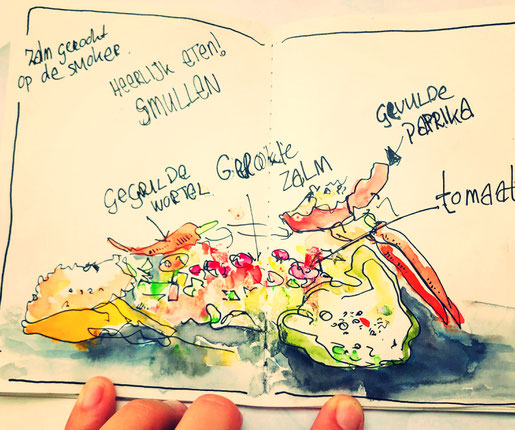 Zalm gerookt
op de smoker.
HEERLIJK ETEN!
SMULLEN
GEVULDE
PAPRIKA
GEGRILDE
WORTEL
GEROOKTE
ZALM
tomaat